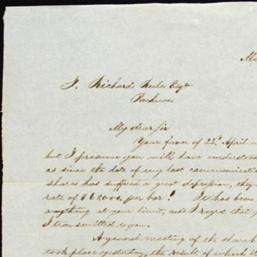 J. Richard Rule Esqr
Pachuca
My dear Sir
Your favor of 22d April
but I presume you will have
as since the date of my last
shares has suffered a great depression, they
rate of $ 2,000 per bar! It has been
anything at your limit, and I regret that
I transmitted to you.
A general meeting of the shareh
took place yesterday, the result of which